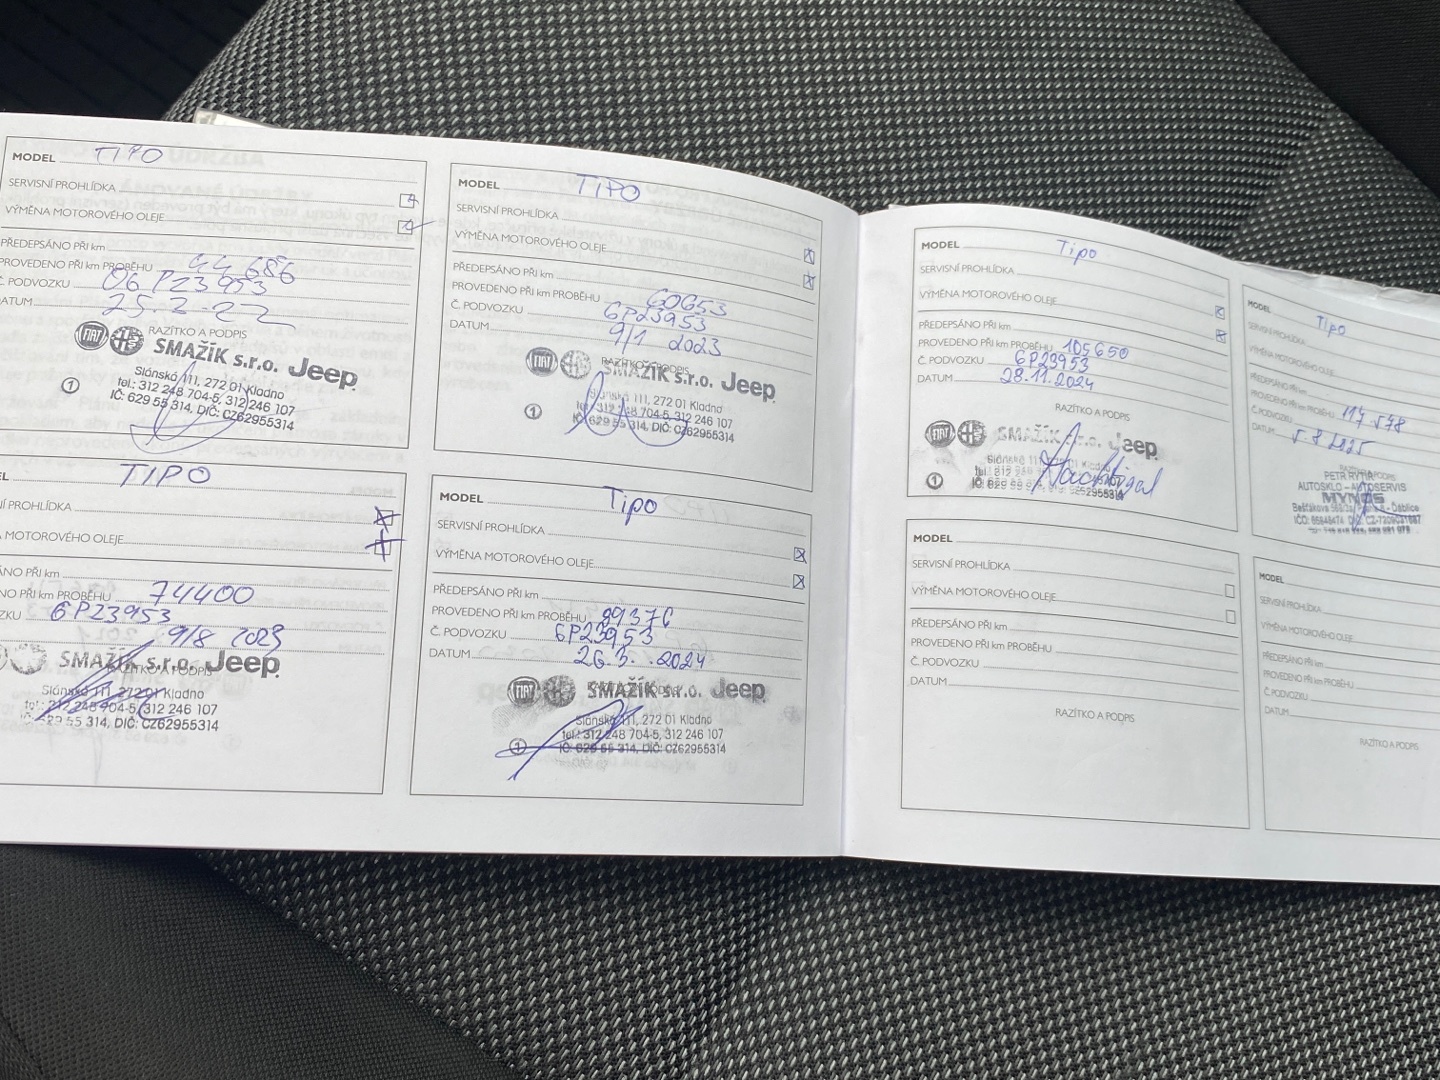 MODEL TIPO
SERVISNÍ PROHLÍDKA
VÝMĚNA MOTOROVÉHO OLEJE
PŘEDEPSÁNO PŘI km
PROVEDENO PŘI km PROBĚHU 44 686
Č. PODVOZKU 06 PZ3953
DATUM 25.2.22
RAZÍTKO A PODPIS
FIAT SMAŽÍK s.r.o. Jeep
Slánská 111, 272 01 Kladno
1 tel.: 312 248 704-5, 312 246 107
IČ: 629 55 314, DIČ: CZ62955314
MODEL TIPO
SERVISNÍ PROHLÍDKA
VÝMĚNA MOTOROVÉHO OLEJE
PŘEDEPSÁNO PŘI km
PROVEDENO PŘI km PROBĚHU 60653
Č. PODVOZKU 6P23953
DATUM 9/1 2023
RAZÍTKO A PODPIS
FIAT SMAŽÍK s.r.o. Jeep
Slánská 111, 272 01 Kladno
1 tel.: 312 248 704-5, 312 246 107
IČ: 629 55 314, DIČ: CZ62955314
EL TIPO
NÍ PROHLÍDKA
A MOTOROVÉHO OLEJE
ÁNO PŘI km
NO PŘI km PROBĚHU 74400
ZKU 6PZ3953
9/8 2023
RAZÍTKO A PODPIS
SMAŽÍK s.r.o. Jeep
Slánská 111, 272 01 Kladno
tel.: 312 248 704-5, 312 246 107
629 55 314, DIČ: CZ62955314
MODEL Tipo
SERVISNÍ PROHLÍDKA
VÝMĚNA MOTOROVÉHO OLEJE
PŘEDEPSÁNO PŘI km
PROVEDENO PŘI km PROBĚHU 89376
Č. PODVOZKU 6P23953
DATUM 26.3.2024
FIAT SMAŽÍK s.r.o. Jeep
Slánská 111, 272 01 Kladno
tel.: 312 248 704-5, 312 246 107
1 IČ: 629 55 314, DIČ: CZ62955314
MODEL Tipo
SERVISNÍ PROHLÍDKA
VÝMĚNA MOTOROVÉHO OLEJE
PŘEDEPSÁNO PŘI km
PROVEDENO PŘI km PROBĚHU 105650
Č. PODVOZKU 6P23953
DATUM 28.11.2024
RAZÍTKO A PODPIS
FIAT SMAŽÍK s.r.o. Jeep
1
MODEL Tipo
SERVISNÍ PROHLÍDKA
VÝMĚNA MOTOROVÉHO OLEJE
PŘEDEPSÁNO PŘI km
PROVEDENO PŘI km PROBĚHU 117 548
Č. PODVOZKU
DATUM 5.8 2025
RAZÍTKO A PODPIS
PETR
AUTOSKLO - AUTOSERVIS
MODEL
SERVISNÍ PROHLÍDKA
VÝMĚNA MOTOROVÉHO OLEJE
PŘEDEPSÁNO PŘI km
PROVEDENO PŘI km PROBĚHU
Č. PODVOZKU
DATUM
RAZÍTKO A PODPIS
MODEL
SERVISNÍ PROHLÍDKA
VÝMĚNA MOTOROVÉHO OLEJE
PŘEDEPSÁNO PŘI km
PROVEDENO PŘI km PROBĚHU
Č. PODVOZKU
DATUM
RAZÍTKO A PODPIS